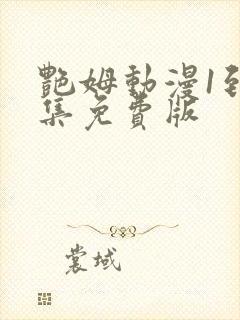 艷姆動漫1到
集免費版
裳域